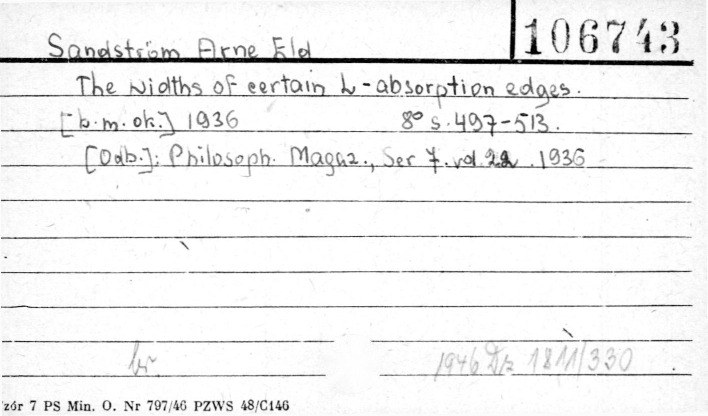 106743
Sandström Arne Eld
The widths of certain L-absorption edges.
[b.m.ok.] 1936 8° s.497-513.
[Odb.]: Philosoph. Magaz., Ser 7. vol. 22. 1936
br.
1946 Dz 1811/330
zór 7 PS Min. O. Nr 797/46 PZWS 48/C146